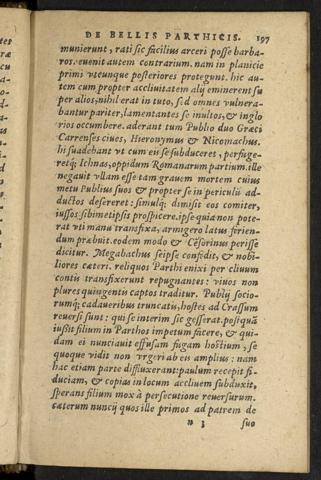 DE BELLIS PARTHICIS. 197
munierunt, rati sic facilius arceri posse barba-
ros. euenit autem contrarium. nam in planicie
primi vtcunque posteriores protegunt. hic au-
tem cum propter accliuitatem alij eminerent su
per alios, nihil erat in tuto, sed omnes vulnera-
bantur pariter, lamentantes se inultos, & inglo
rios occumbere. aderant tum Publio duo Græci
Carrenses ciues, Hieronymus & Nicomachus.
hi suadebant vt cum eis se subduceret, perfuge-
retq; Ichnas, oppidum Romanarum partium. ille
negauit vllam esse tam grauem mortem cuius
metu Publius suos & propter se in periculū ad-
ductos desereret: simulq; dimisit eos comiter,
iussos sibimetipsis prospicere. ipse quia non pote-
rat vti manu transfixa, armigero latus ferien-
dum præbuit. eodem modo & Cēsorinus perisse
dicitur. Megabachus seipse confodit, & nobi-
liores cæteri. reliquos Parthi enixi per cliuum
contis transfixerunt repugnantes: viuos non
plures quingentis captos traditur. Publij socio-
rumq; cadaueribus truncatis, hostes ad Crassum
reuersi sunt: qui se interim sic gesserat. postquā
iussit filium in Parthos impetum facere, & qui-
dam ei nunciauit effusam fugam hostium, se
quoque vidit non vrgeri ab eis amplius: nam
hac etiam parte diffluxerant: paulum recepit fi-
duciam, & copias in locum accliuem subduxit,
sperans filium mox à persecutione reuersurum.
cæterum nuncij quos ille primos ad patrem de
n 3 suo